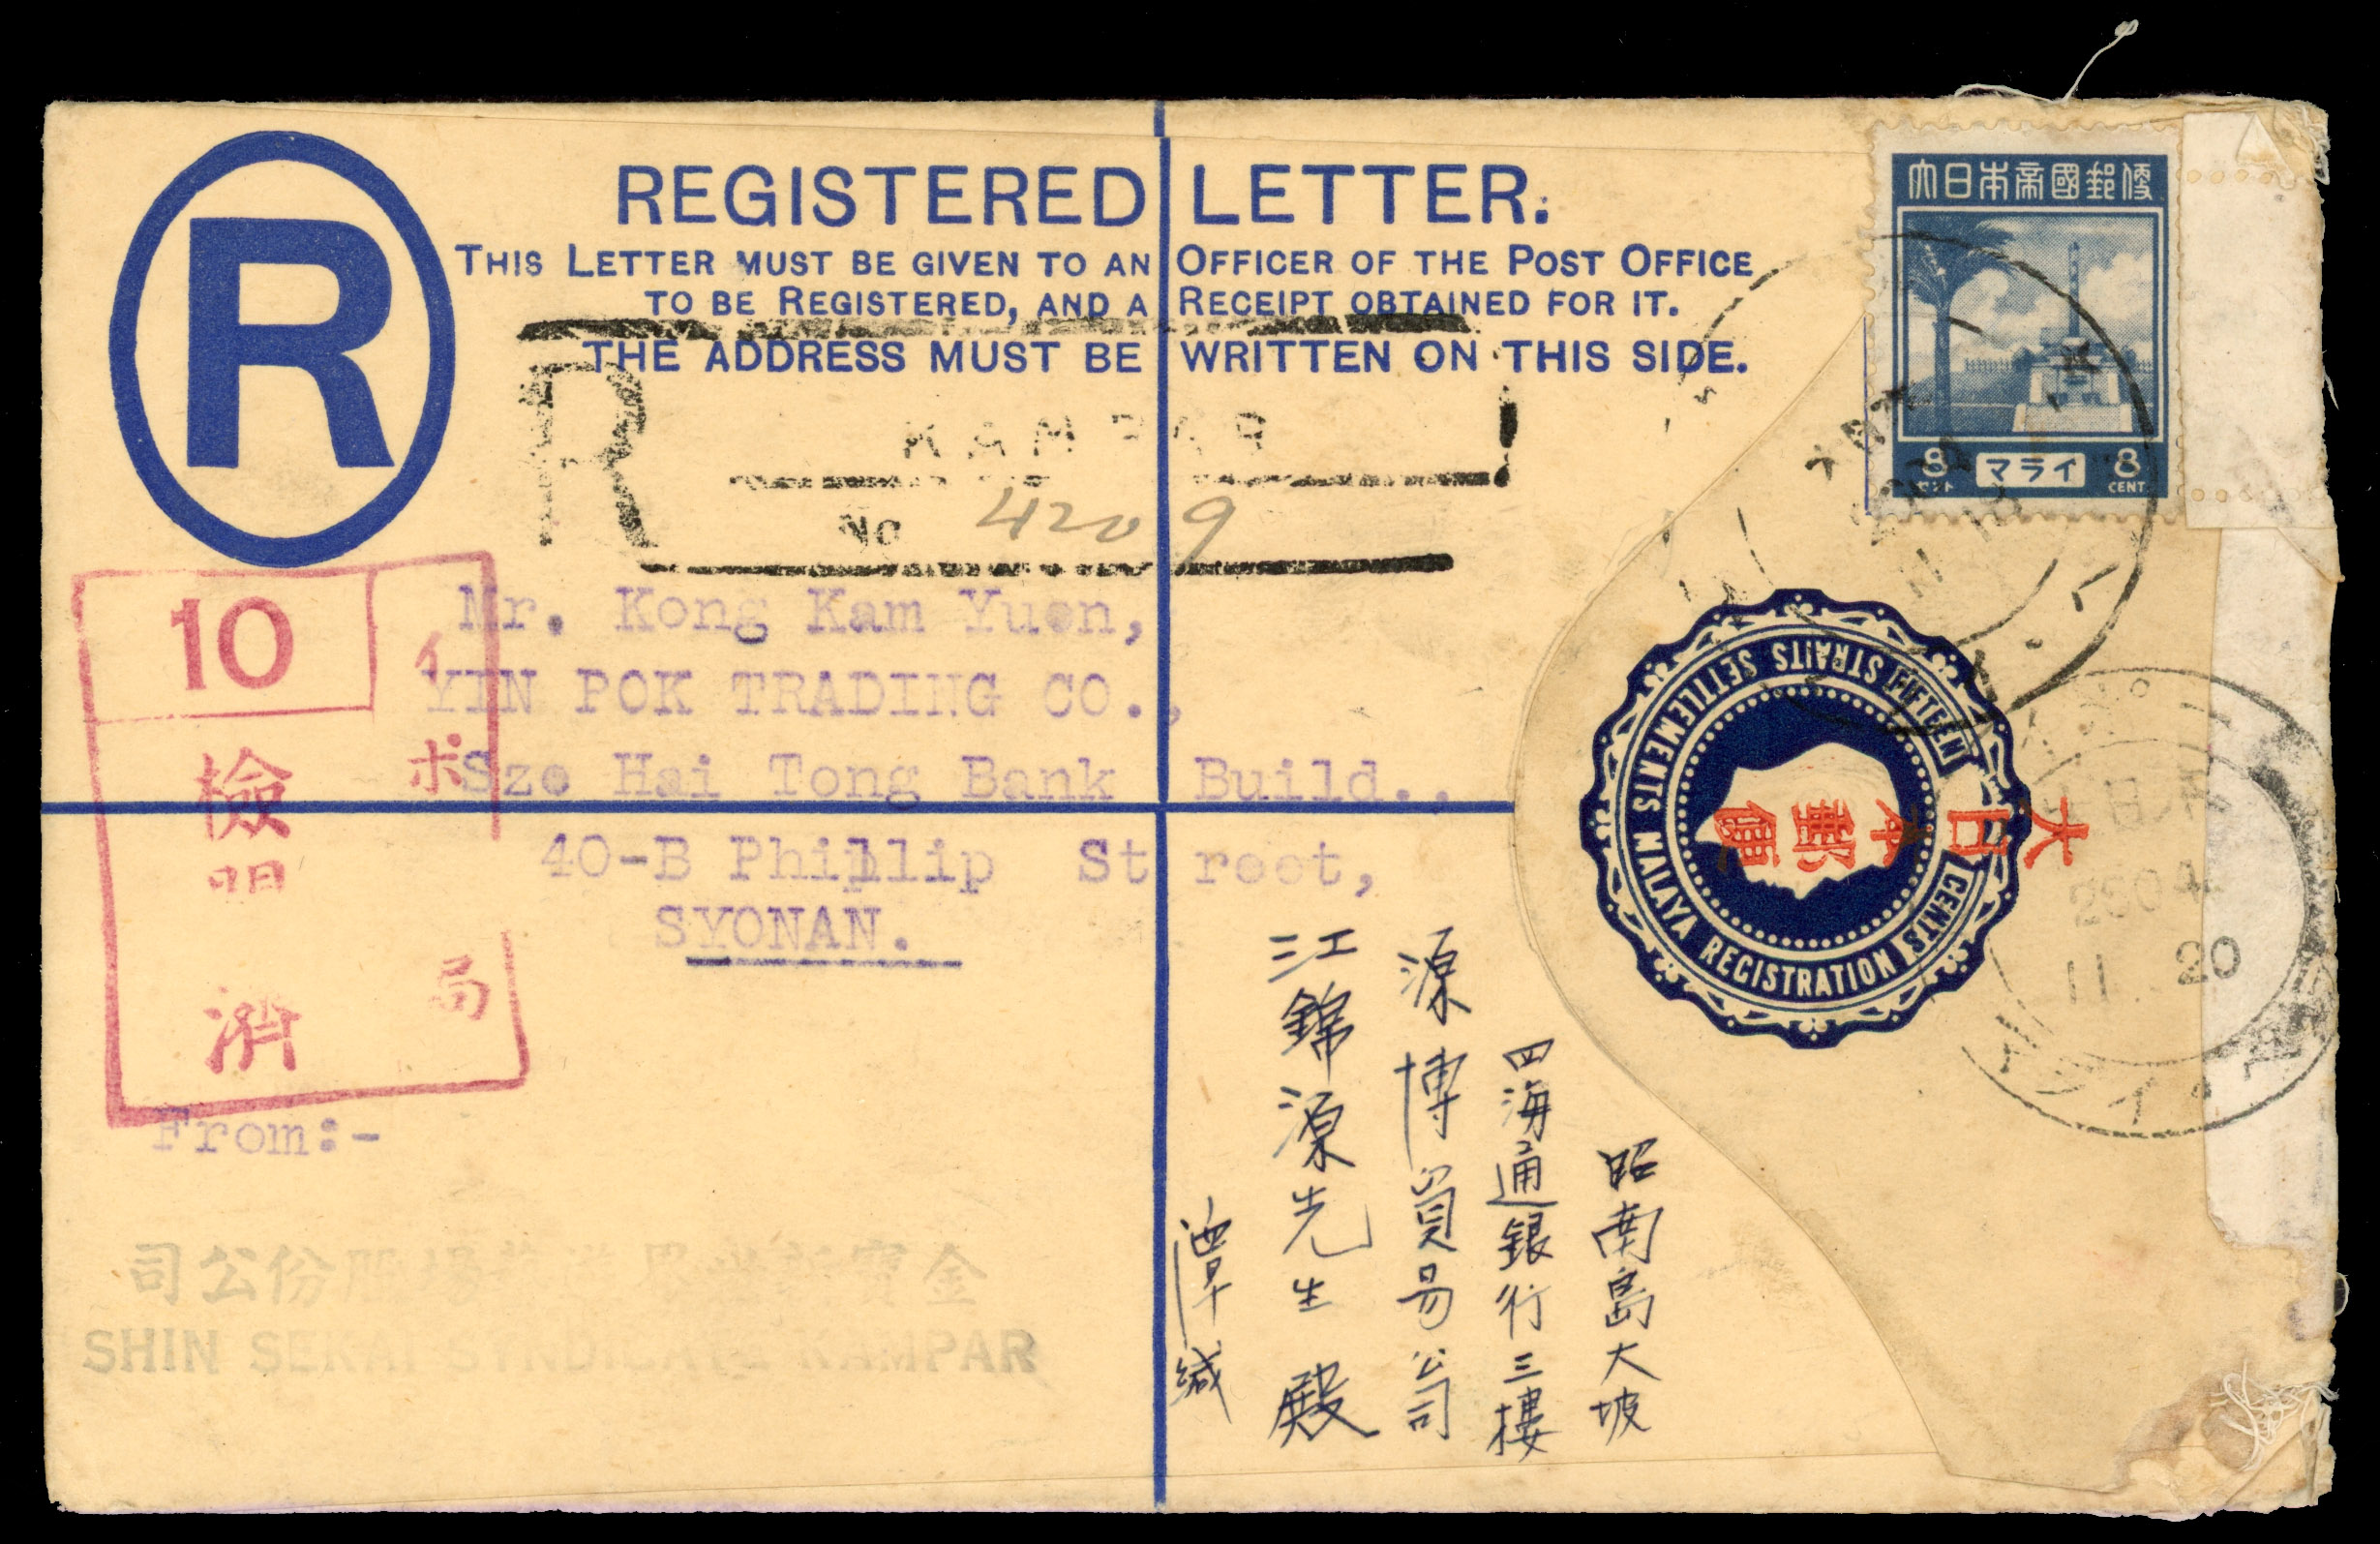 REGISTERED LETTER.
THIS LETTER MUST BE GIVEN TO AN OFFICER OF THE POST OFFICE
TO BE REGISTERED, AND A RECEIPT OBTAINED FOR IT.
THE ADDRESS MUST BE WRITTEN ON THIS SIDE.
R
大日本帝國郵便
8 マライ 8
セント CENT.
R KAMPAR
No 4209
Mr. Kong Kam Yuen,
YIN POK TRADING CO.,
Sze Hai Tong Bank Build.,
40-B Phillip Street,
SYONAN.
10
檢閲済
イポ局
FIFTEEN CENTS
STRAITS SETTLEMENTS MALAYA REGISTRATION
大日本郵便
2604
11 20
マライ
From:-
金寶 份公司
SHIN SEKAI SYNDICATE KAMPAR
昭南島大坡
四海通銀行三樓
源博貿易公司
江錦源先生殿
潭緘